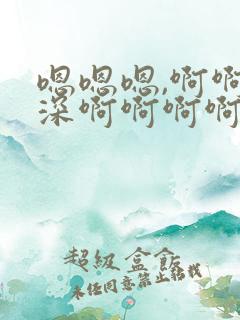 嗯嗯嗯,啊啊
深啊啊啊啊
超級盒飯
未经同意禁止转载